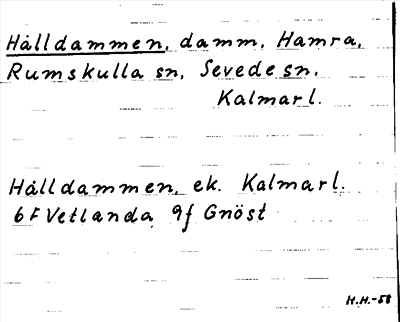 Hålldammen, damm, Hamra,
Rumskulla sn, Sevede sn,
Kalmarl.
Hålldammen, ek. Kalmarl.
6F Vetlanda 9f Gnöst
H.H.-58